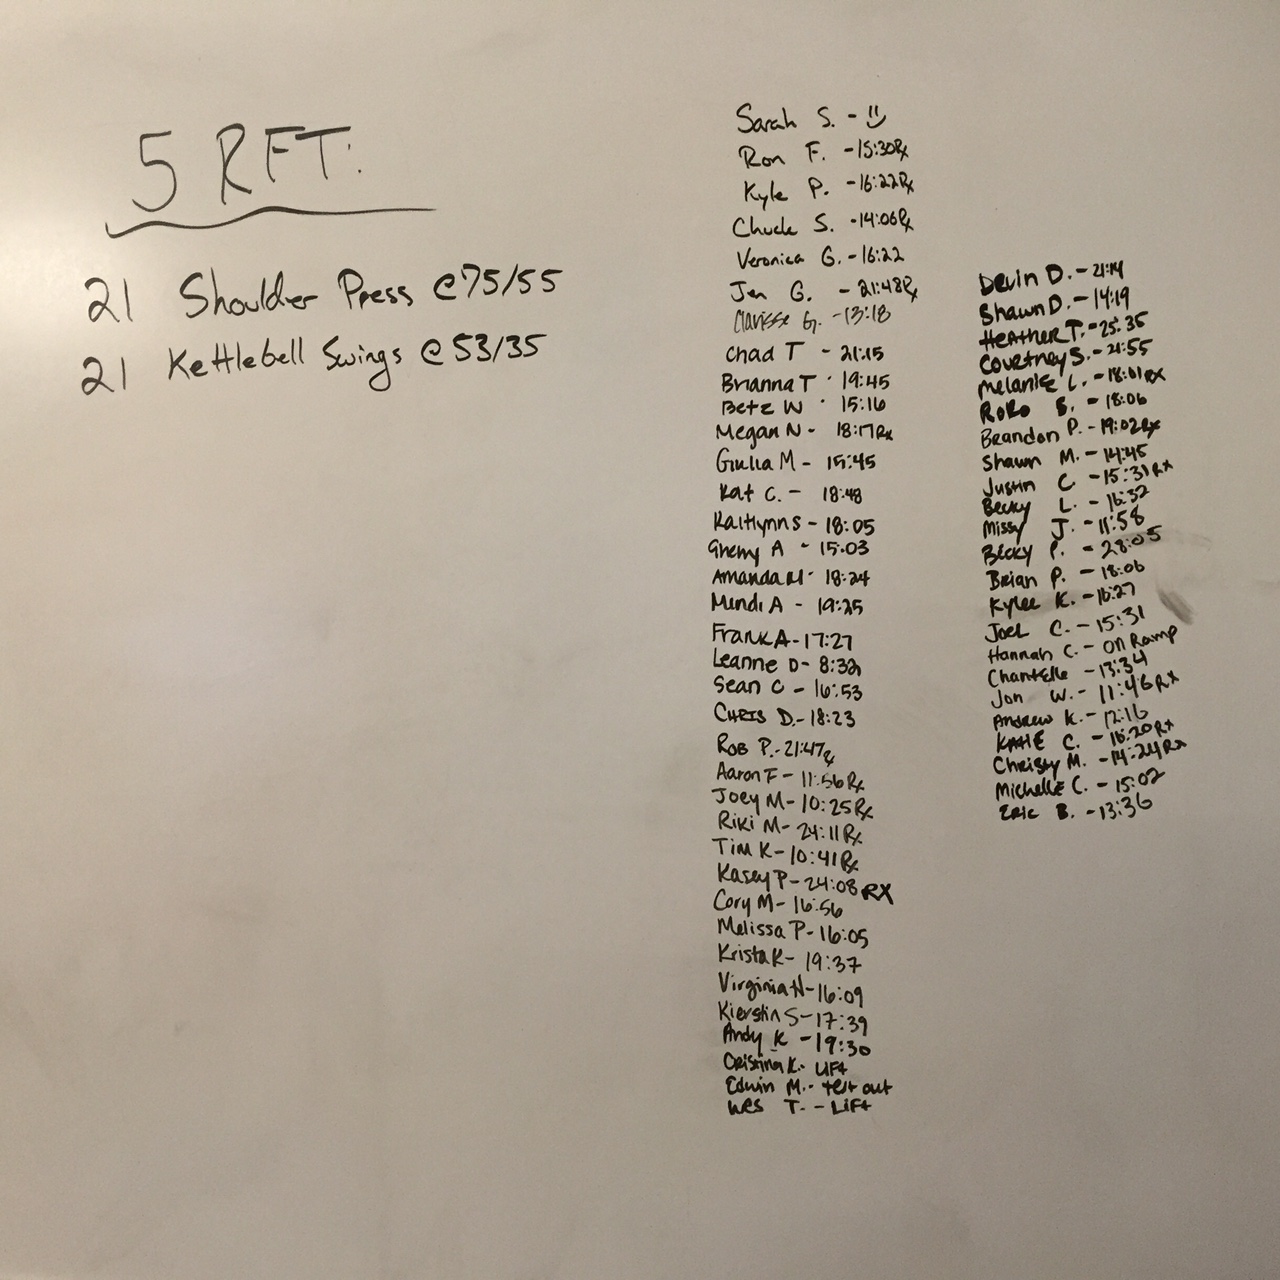 5 RFT:
21 Shoulder Press @75/55
21 Kettlebell Swings @53/35
Sarah S. -
Ron F. -15:30Rx
Kyle P. -16:22Rx
Chuck S. -14:06Rx
Veronica G. -16:22
Jen G. -21:48Rx
Clarisse G. -13:18
Chad T - 21:15
Brianna T - 19:45
Betz W - 15:16
Megan N - 18:17Rx
Giulia M - 15:45
Kat C. - 18:48
Kaitlynn S - 18:05
A - 15:03
Amanda M - 18:24
Mindi A - 19:25
Frank A - 17:27
Leanne D - 8:32
Sean C - 16:53
CHRIS D. - 18:23
Rob P. - 21:47
Aaron F - 11:56Rx
Joey M - 10:25Rx
Riki M - 24:11Rx
Tim K - 10:41Rx
Kasey P - 24:08 RX
Cory M - 16:56
Melissa P - 16:05
Krista K - 19:37
Virginia H - 16:09
Kierstin S - 17:39
Andy K - 19:30
Cristina K. - Lift
Edwin M. - test out
Wes T. - Lift
Devin D. - 21:14
Shawn D. - 14:19
Heather T. - 25:35
Courtney S. - 21:55
Melanie L. - 18:01RX
RoRo B. - 18:06
Brandon P. - 19:02Rx
Shawn M. - 14:45
Justin C - 15:31RX
Becky L. - 16:32
Missy J. - 11:58
Becky P. - 28:05
Brian P. - 18:06
Kylee K. - 16:27
Joel C. - 15:31
Hannah C. - On Ramp
Chantelle - 13:34
Jon W. - 11:46RX
Andrew K. - 12:16
Katie C. - 16:20RX
Christy M. - 14:24Rx
Michelle C. - 15:02
Eric B. - 13:36